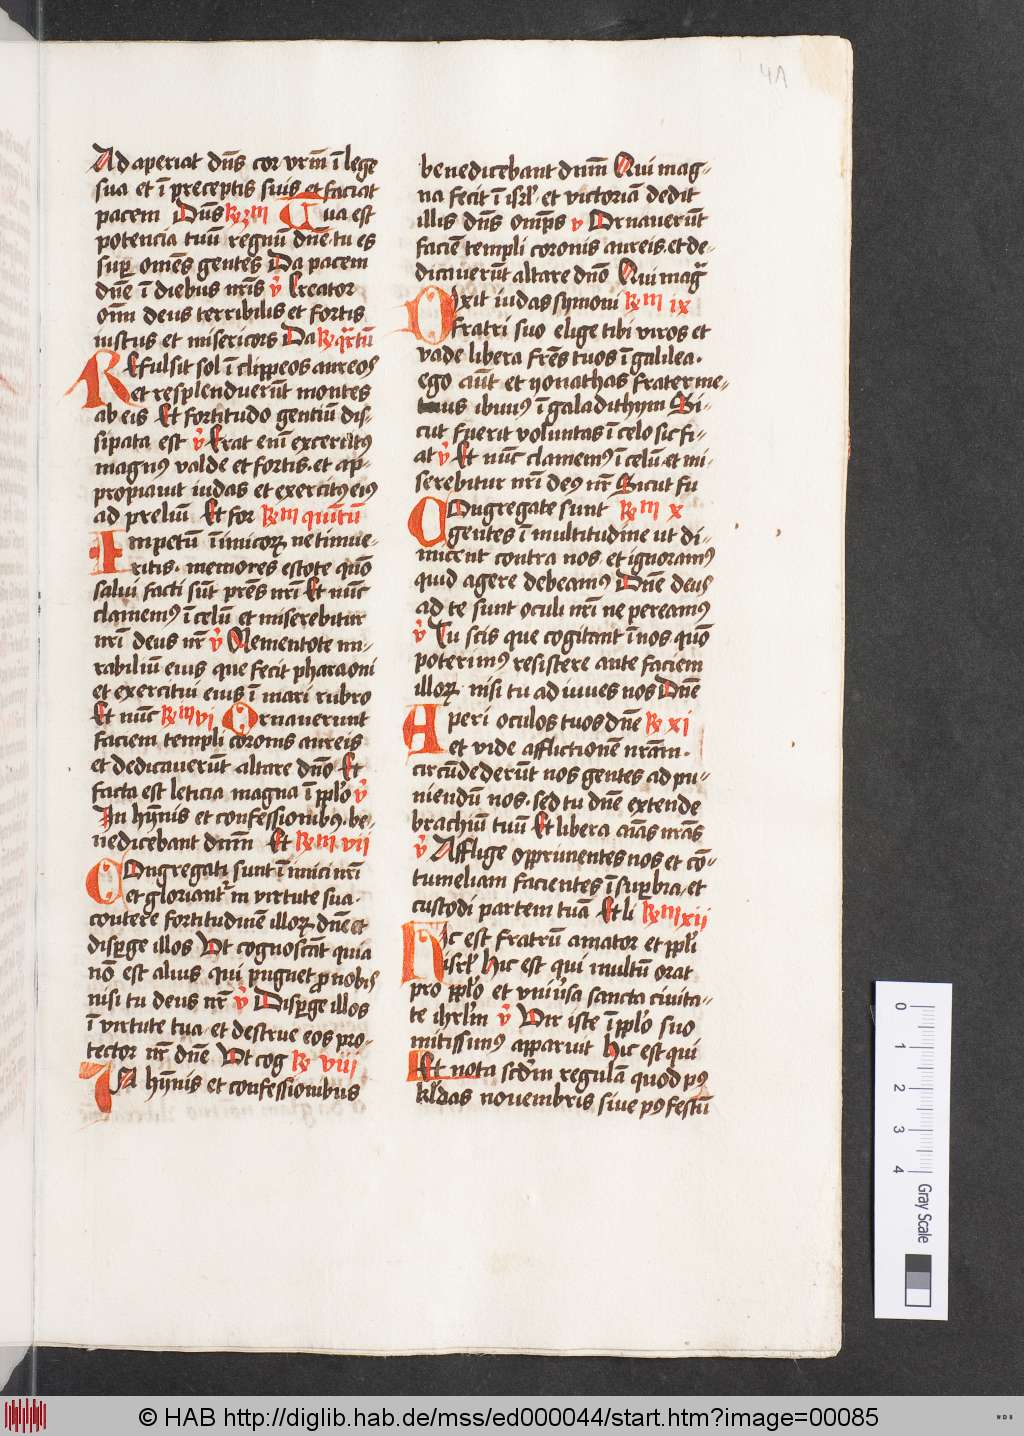 41
Adaperiat dn̄s cor vrm̄ ī lege
sua et ī preceptis suis et faciat
pacem Dn̄s R̸m iii Tua est
potencia tuū regnū dn̄e · tu es
suꝑ omēs gentes Da pacem
dn̄e ī diebus nr̄is v̄ Creator
om̄ deus terribilis et fortis
iustus et misericors Da R̸ q̄rtū
Refulsit sol ī clippeos aureos
et resplenduerūt montes
ab eis Et fortitudo gentiū dis-
sipata est v̄ Erat enī excercitꝰ
magnꝰ valde et fortis · et ap-
propiauit iudas et exercitꝰ eiꝰ
ad preliū Et for R̸m quītū
Impetū īimicoꝝ ne timue-
ritis · memores estote quō
salui facti sūt prēs nr̄i Et nūc
clamemꝰ ī celū et miserebitur
nr̄i deus nr̄ v̄ Mementote mi-
rabiliū eius que fecit pharaoni
et exercitui eius ī mari rubro
Et nūc R̸m vi Ornauerunt
faciem templi coronis aureis
et dedicauerūt altare dn̄o Et
facta est leticia magna ī ppl̄o v̄
In hȳnis et confessionibꝰ · be-
nedicebant dnm̄ Et R̸m vii
Congregati sunt īimici nr̄i
et gloriant᷑ in virtute sua ·
contere fortitudinē illoꝝ dn̄e et
disꝑge illos Vt cognoscāt quia
nō est alius qui pugnet pro nobis
nisi tu deus nr̄ v̄ Disꝑge illos
ī virtute tua · et destrue eos pro-
tector nr̄ dn̄e Vt cog R̸ viii
In hȳnis et confessionibus
benedicebant dnm̄ Qui mag-
na fecit ī isrl̄ · et victoriā dedit
illis dn̄s omp̄s v Ornauerūt
faciē templi coronis aureis · et de-
dicauerūt altare dn̄o Qui maḡ
Dixit iudas symoni R̸m ix
fratri suo elige tibi viros et
vade libera frēs tuos ī galilea ·
ego aūt et yonathas frater me-
us ibimꝰ ī galadithym Si-
cut fuerit voluntas ī celo sic fi-
at v̄ Et nūc clamemꝰ ī celū · et mi-
serebitur nr̄i deꝰ nr̄ Sicut fu
Congregate sunt R̸m x
gentes ī multitudine ut di-
micent contra nos et ignoramꝰ
quid agere debeamꝰ Dn̄e deus
ad te sunt oculi nr̄i ne pereamꝰ
v̄ Tu scis que cogitant ī nos quō
poterimꝰ resistere ante faciem
illoꝝ nisi tu adiuues nos Dn̄e
Aperi oculos tuos dn̄e R̸ xi
et vide afflictionē nrām ·
circūdederūt nos gentes ad pu-
niendū nos · sed tu dn̄e extende
brachiū tuū Et libera aīas nrās
v̄ Afflige opprimentes nos et cō-
tumeliam facientes ī suꝑbia · et
custodi partem tuā Et li R̸m xii
Hic est fratrū amator et ppl̄i
isrl̄ Hic est qui multū orat
pro ppl̄o et vniūsa sancta ciuita-
te ihrl̄m v̄ Vir iste ī ppl̄o suo
mitissimꝰ apparuit Hic est qui
Et nota scdm̄ regulā quod pꝰ
kl̄das nouembris siue pꝰ festū
0
1
2
3
4
Gray Scale
© HAB http://diglib.hab.de/mss/ed000044/start.htm?image=00085